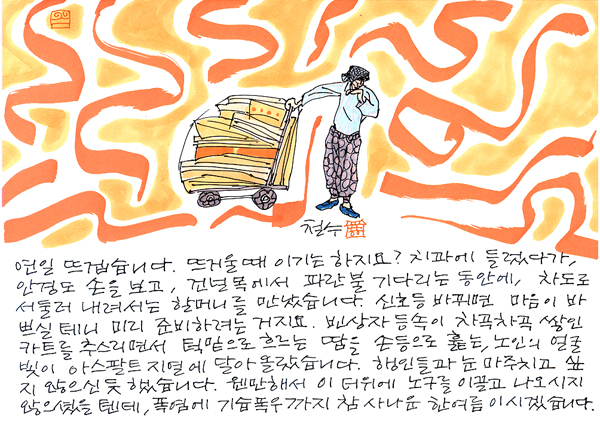 철수
연일 뜨겁습니다. 뜨거울 때 이기는 하지요? 치과에 들렀다가,
안경도 손을 보고, 건널목에서 파란불 기다리는 동안에, 차도로
서둘러 내려서는 할머니를 만났습니다. 신호등 바뀌면 마음이 바
쁘실 테니 미리 준비하려는 거지요. 빈상자 등속이 차곡차곡 쌓인
카트를 추스리면서 턱밑으로 흐르는 땀을 손등으로 훔는, 노인의 얼굴
빛이 아스팔트 지열에 달아 올랐습니다. 행인들과 눈 마주치고 싶
지 않으신 듯 했습니다. 웬만해서 이 더위에 노구를 이끌고 나오시지
않으셨을 텐데, 폭염에 기습폭우까지 참 사나운 한여름이시겠습니다.